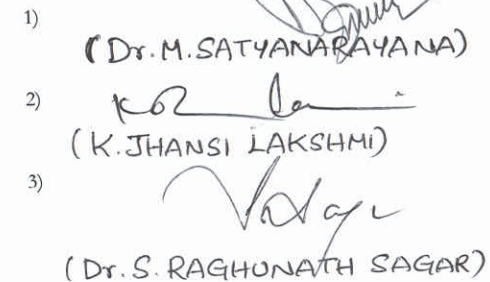 1)
(Dr. M. SATYANARAYANA)
2)
(K. JHANSI LAKSHMI)
3)
(Dr. S. RAGHUNATH SAGAR)